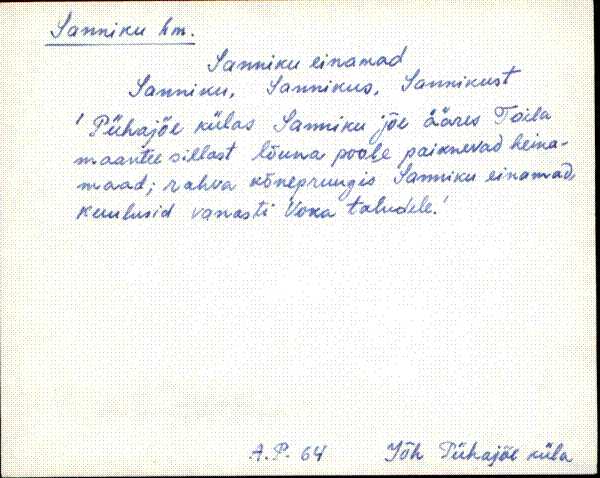 Sanniku hm.
Sanniku einamad
Sanniku, Sannikus, Sannikust
' Pühajõe külas Sanniku jõe ääres Toila
maantee sillast lõuna poole paiknevad heina-
maad; rahva kõnepruugis Sanniku einamad,
kuulusid vanasti Voka taludele.'
A.P. 64 Jõh Pühajõe küla